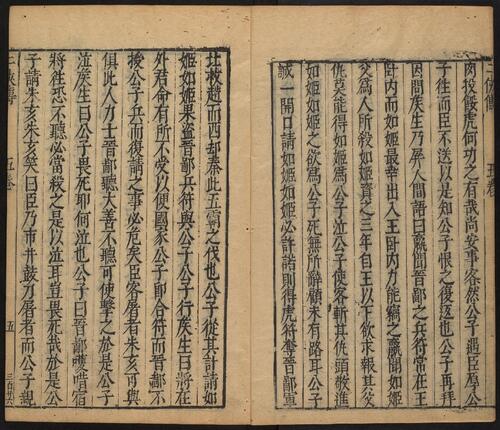 二俠傳　五卷
肉投餒虎何功之有哉尚安事客然公子遇臣厚公
子往而臣不送以是知公子恨之復返也公子再拜
因問矦生乃屏人間語曰嬴聞晉鄙之兵符常在王
臥内而如姬最幸出入王臥内力能竊之嬴聞如姬
父爲人所殺如姬資之三年自王以下欲求報其父
仇莫能得如姬爲公子泣公子使客斬其仇頭敬進
如姬如姬之欲爲公子死無所辭顧未有路耳公子
誠一開口請如姬如姬必許諾則得虎符奪晉鄙軍
北救趙而西却秦此五霸之伐也公子從其計請如
姬如姬果盜晉鄙兵符與公子公子行矦生曰將在
外君命有所不受以便國家公子即合符而晉鄙不
授公子兵而復請之事必危矣臣客屠者朱亥可與
俱此人力士晉鄙聽大善不聽可使擊之於是公子
泣矦生曰公子畏死耶何泣也公子曰晉鄙嚄唶宿
將往恐不聽必當殺之是以泣耳豈畏死哉於是公
子請朱亥朱亥笑曰臣乃市井鼓刀屠者而公子親
二俠傳　五卷　五